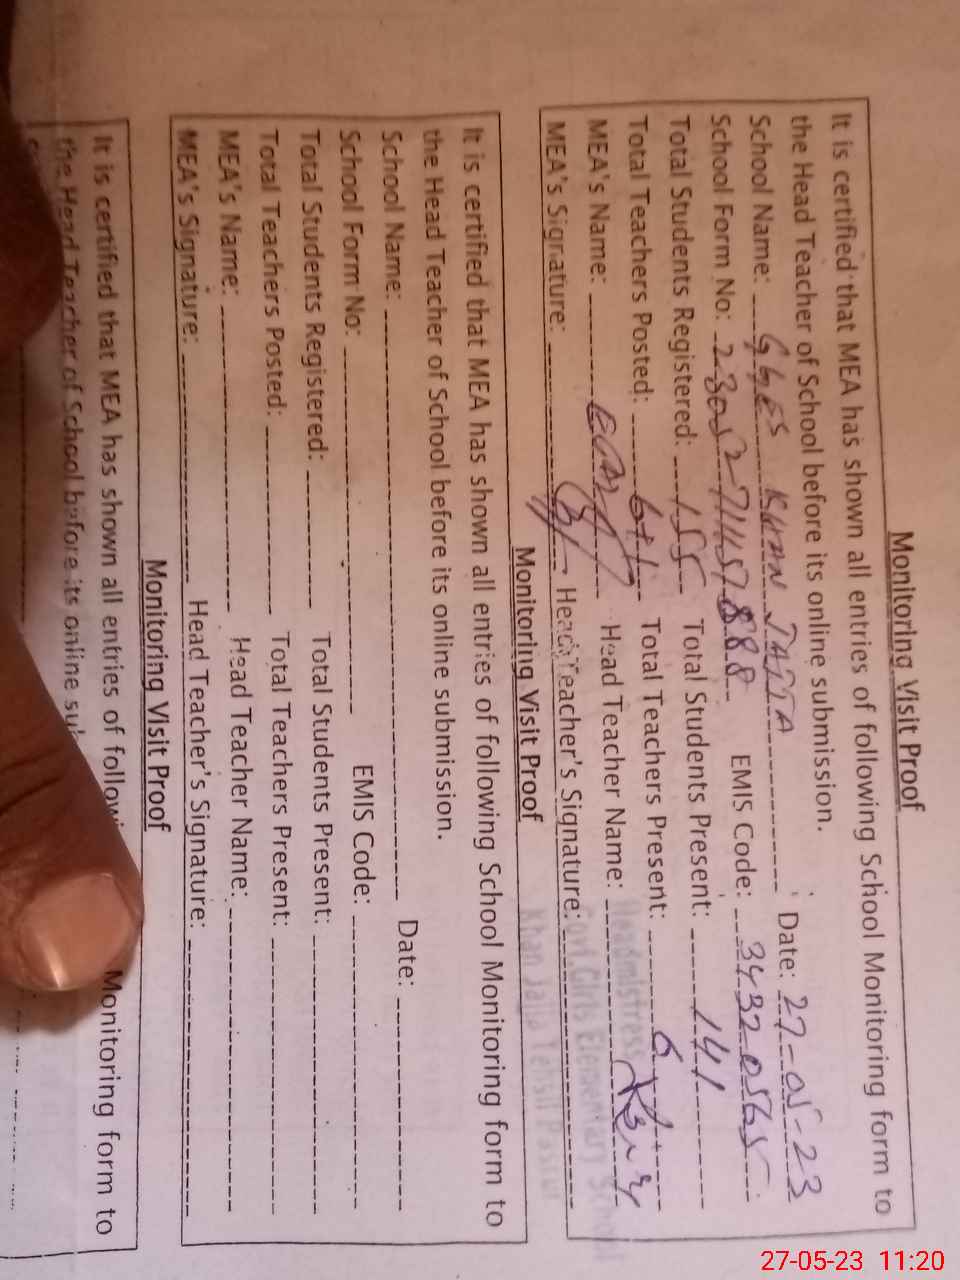 Monitoring Visit Proof
It is certified that MEA has shown all entries of following School Monitoring form to
the Head Teacher of School before its online submission.
School Name: GGES KHAN JAJJA Date: 27-05-23
School Form No: EMIS Code: 34320565
Total Students Registered: 155 Total Students Present: 141
Total Teachers Posted: 6+1 Total Teachers Present: 6+1
MEA's Name: Head Teacher Name:
MEA's Signature: Head Teacher's Signature:
Headmistress
Govt Girls Elementary School
Khan Jajja Tehsil Pasrur
Monitoring Visit Proof
It is certified that MEA has shown all entries of following School Monitoring form to
the Head Teacher of School before its online submission.
School Name: Date:
School Form No: EMIS Code:
Total Students Registered: Total Students Present:
Total Teachers Posted: Total Teachers Present:
MEA's Name: Head Teacher Name:
MEA's Signature: Head Teacher's Signature:
Monitoring Visit Proof
It is certified that MEA has shown all entries of Monitoring form to
the Head Teacher of School before its online
27-05-23 11:20